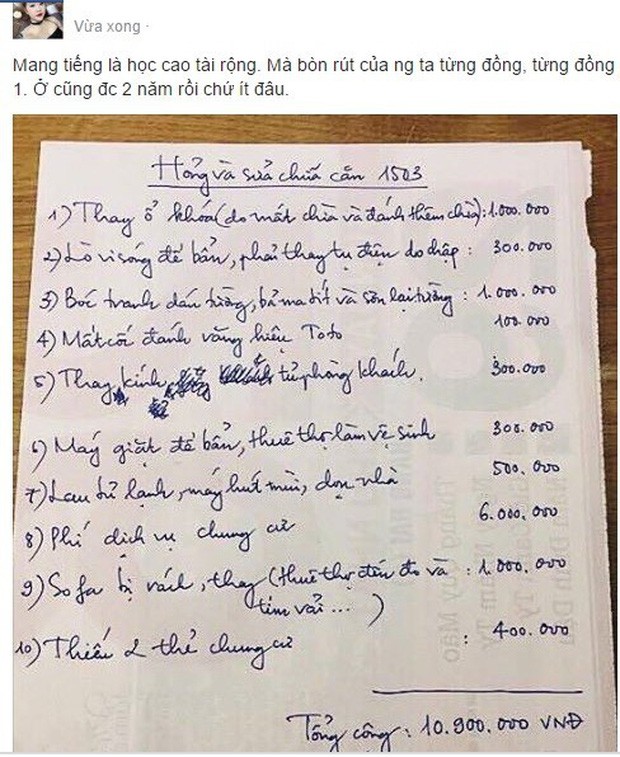 Vừa xong ·
Mang tiếng là học cao tài rộng. Mà bòn rút của ng ta từng đồng, từng đồng
1. Ở cũng đc 2 năm rồi chứ ít đâu.
Hỏng và sửa chữa căn 1503
1) Thay ổ khóa (do mất chìa và đánh thêm chìa): 1.000.000
2) Lò vi sóng để bẩn, phải thay tụ điện do chập: 300.000
3) Bóc tranh dán tường, bả ma tít và sơn lại tường: 1.000.000
4) Mất cốc đánh răng hiệu Toto 100.000
5) Thay kính tủ phòng khách. 300.000
6) Máy giặt để bẩn, thuê thợ làm vệ sinh 300.000
7) Lau tủ lạnh, máy hút mùi, dọn nhà 500.000
8) Phí dịch vụ chung cư 6.000.000
9) Sofa bị rách, thay (thuê thợ đến đo và : 1.000.000
tìm vải...)
10) Thiếu 2 thẻ chung cư : 400.000
Tổng cộng: 10.900.000 VNĐ